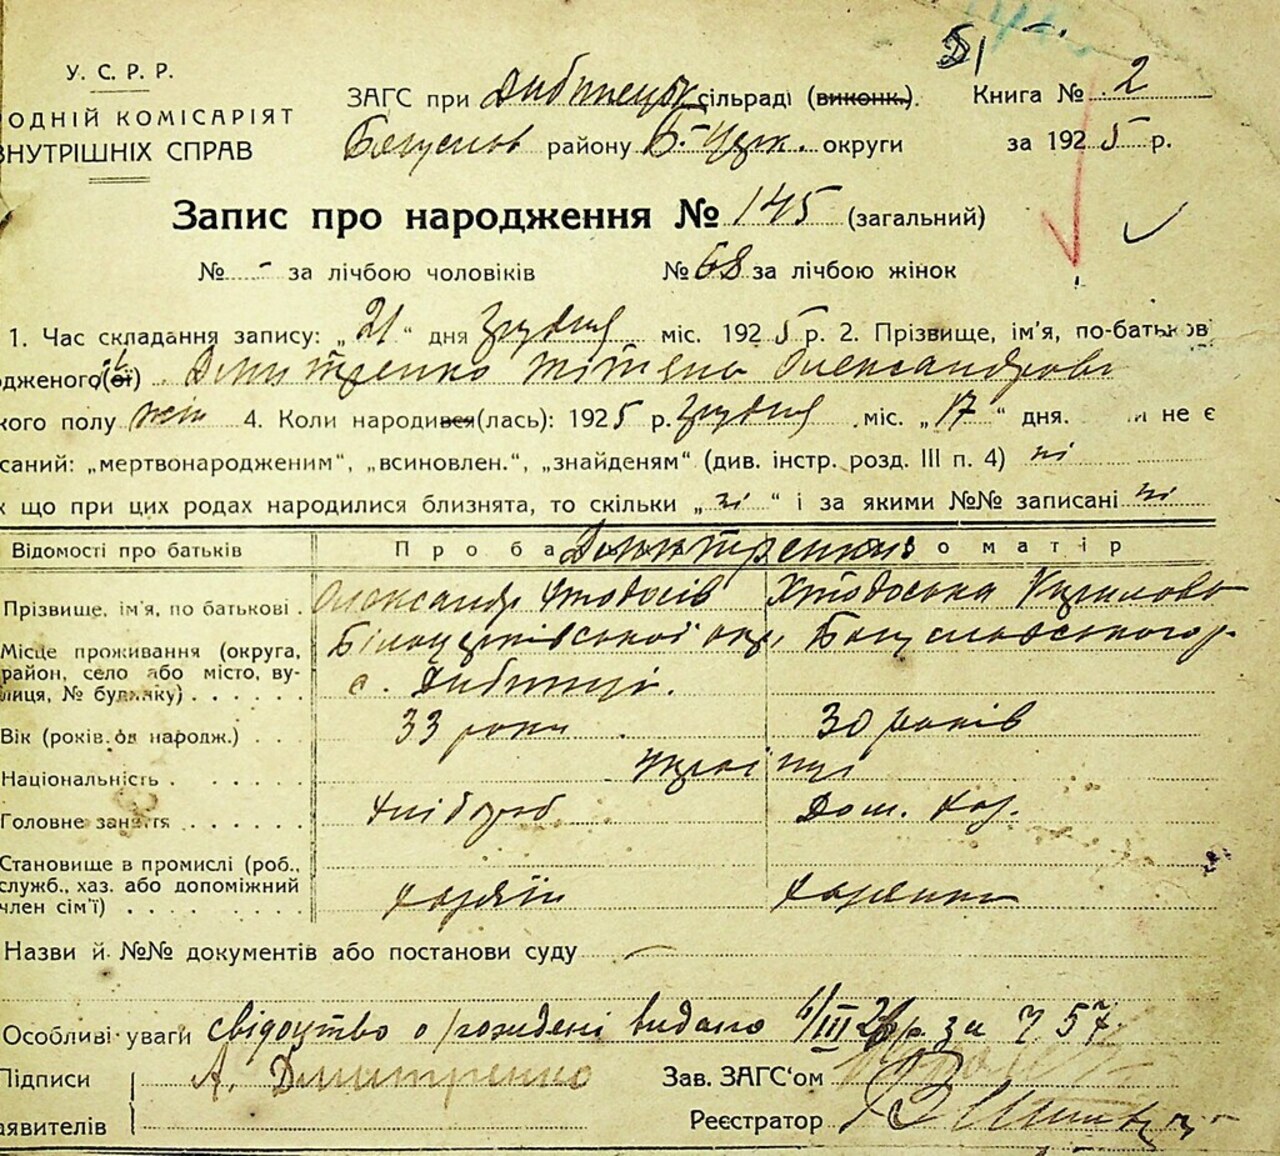 51
У. С. Р. Р.
ОДНІЙ КОМІСАРІЯТ
ВНУТРІШНІХ СПРАВ
ЗАГС при Дибинецьк сільраді (виконк.). Книга № 2
Богуслав району Б-Церк. округи за 1925 р.
Запис про народження № 145 (загальний)
№ - за лічбою чоловіків № 68 за лічбою жінок
1. Час складання запису: „21“ дня Грудня міс. 1925 р. 2. Прізвище, ім'я, по-батькові
одженого(ої) Дмитренко Тітяна Олександрова
кого полу жін 4. Коли народився(лась): 1925 р. Грудня міс. „17“ дня. и не є
саний: „мертвонародженим“, „всиновлен.“, „знайденям“ (див. інстр. розд. III п. 4) ні
х що при цих родах народилися близнята, то скільки „ні“ і за якими №№ записані ні
Відомості про батьків Про ба Дмитренки о матір
Прізвище, ім'я, по батькові . Олександр Хтодосів Хтодоська Кирилова
Місце проживання (округа, Білоцерківської окр, Богуславського р.
район, село або місто, ву-
лиця, № будинку) . . . . . . с. Дибинці.
Вік (років. од народж.) . . . 33 роки 30 років
Національність . . . . . . Українці
Головне заняття . . . . . . Хлібороб Дом. Хаз.
Становище в промислі (роб.,
служб., хаз. або допоміжний
член сім'ї) . . . . . . . . . хазяїн хазяйка
Назви й №№ документів або постанови суду
Особливі уваги свідоцтво о рождені видано 6/III 26 р. за № 57
Підписи А. Дмитренко Зав. ЗАГС'ом
аявителів Реєстратор